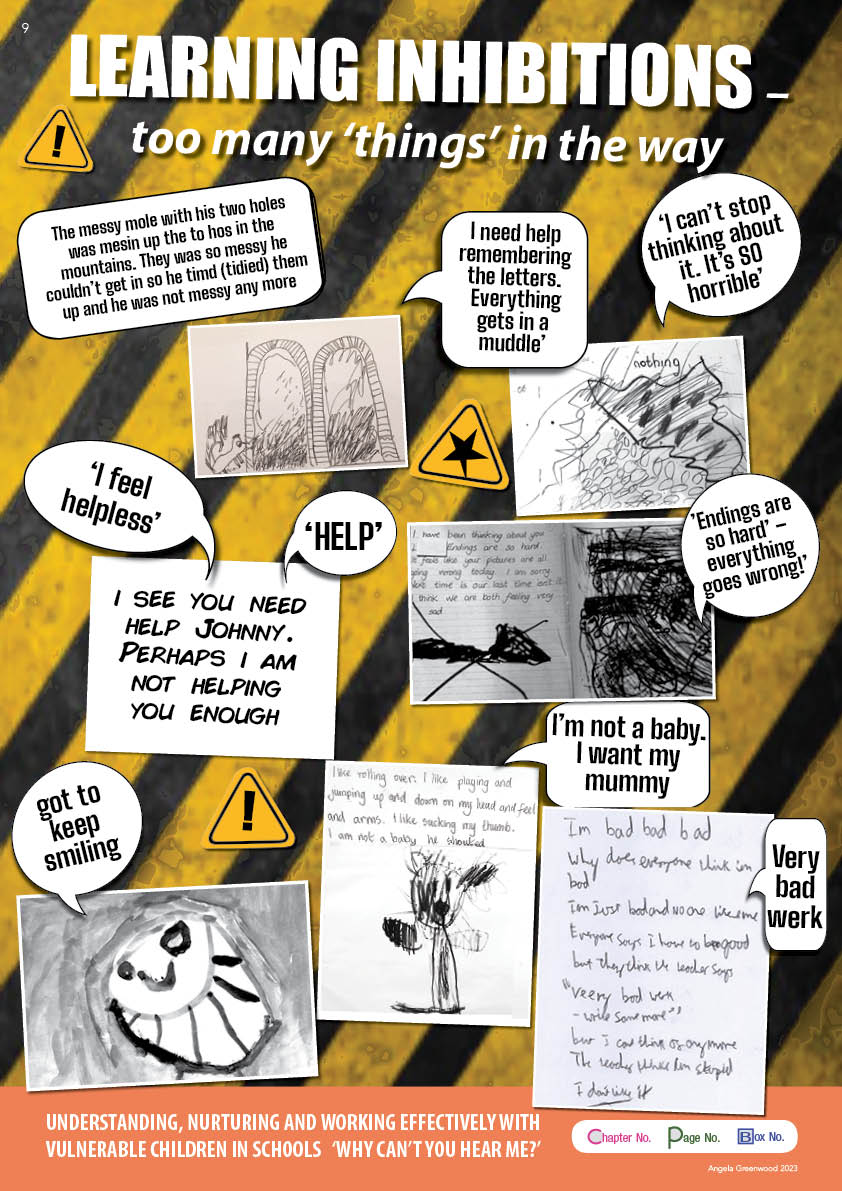 9
LEARNING INHIBITIONS –
too many ‘things’ in the way
The messy mole with his two holes
was mesin up the to hos in the
mountains. They was so messy he
couldn’t get in so he timd (tidied) them
up and he was not messy any more
I need help
remembering
the letters.
Everything
gets in a
muddle’
‘I can’t stop
thinking about
it. It’s SO
horrible’
nothing
‘I feel
helpless’
‘HELP’
I SEE YOU NEED
HELP JOHNNY.
PERHAPS I AM
NOT HELPING
YOU ENOUGH
I have been thinking about you
Endings are so hard.
feels like your pictures are all
going wrong today. I am sorry
time is our last time isn't it
think we are both feeling very
sad
’Endings are
so hard’ –
everything
goes wrong!’
I’m not a baby.
I want my
mummy
I like rolling over. I like playing and
jumping up and down on my head and feet
and arms. I like sucking my thumb.
I am not a baby he shouted
got to
keep
smiling
Im bad bad bad
Why does everyone think im
bad
Im Just bad and no one like me
Everyone says I have to be good
but they think the teacher says
"veery bad werk
- write some more"
but I can think of any more
The teacher thinks Im stupid
I don't like it
Very
bad
werk
UNDERSTANDING, NURTURING AND WORKING EFFECTIVELY WITH
VULNERABLE CHILDREN IN SCHOOLS ‘WHY CAN’T YOU HEAR ME?’
Chapter No. Page No. Box No.
Angela Greenwood 2023